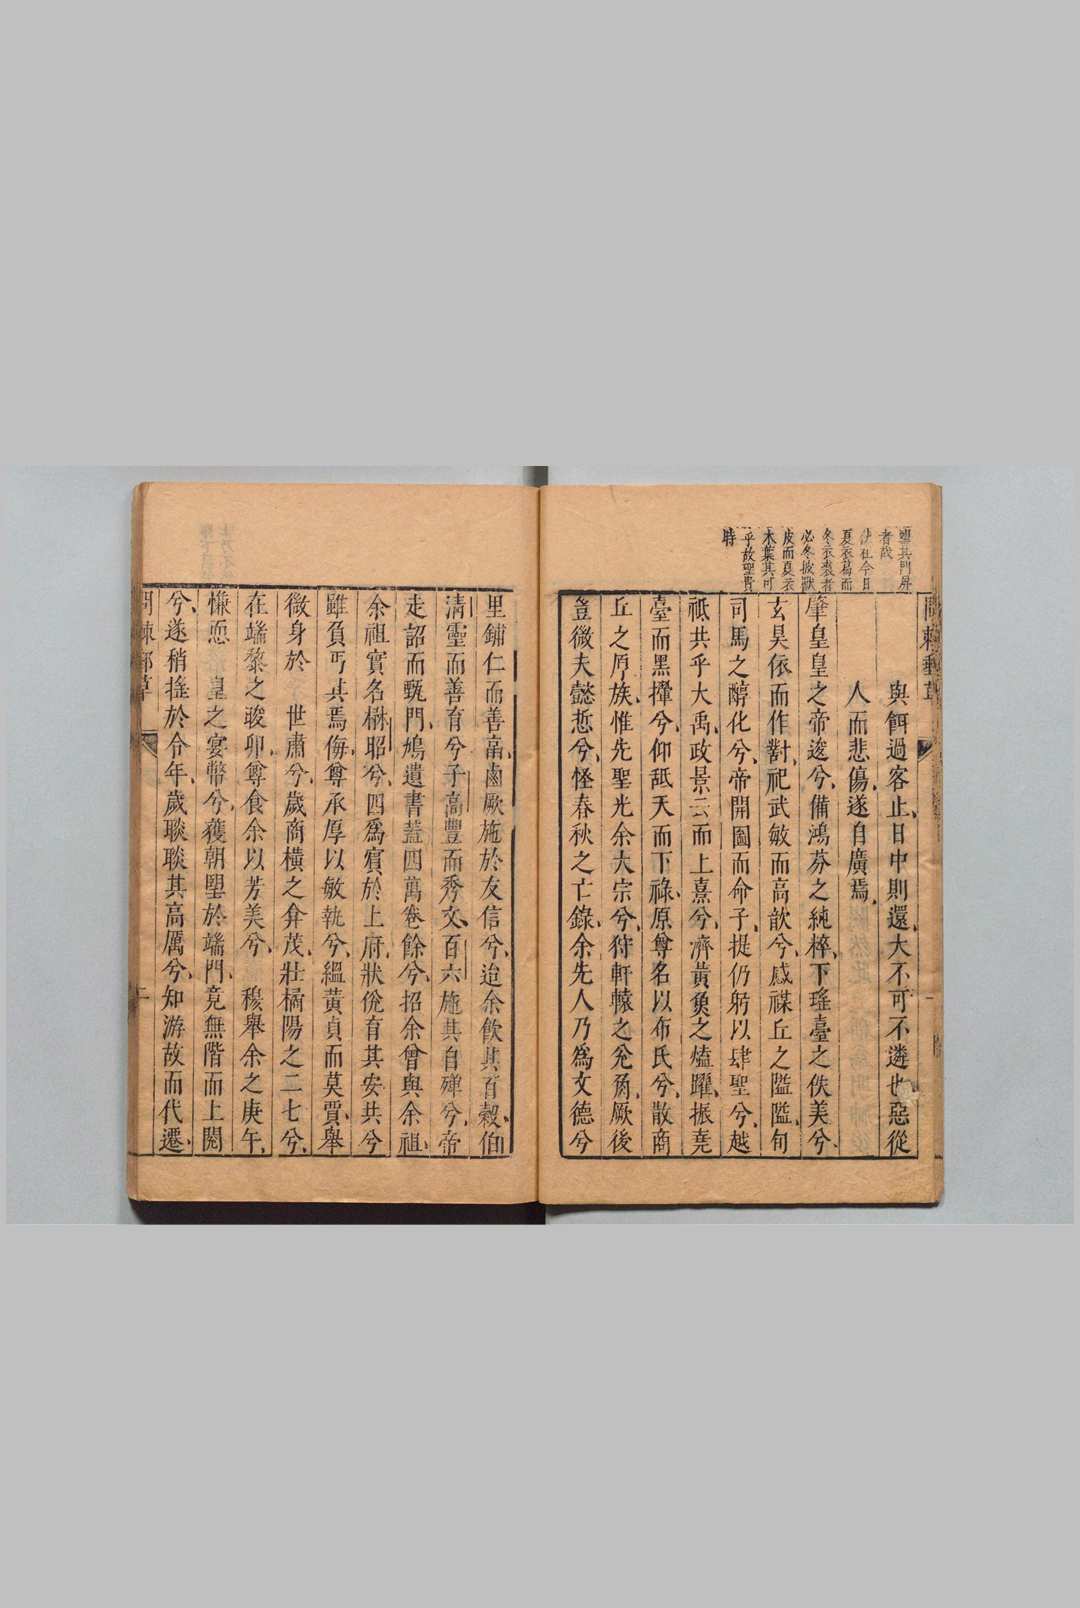 其門屏
者哉
今日
夏衣葛而
冬衣裘者
必冬披獸
皮而夏衣
木葉其可
乎故聖貴
時
與餌過客止日中則還大不可不遴也惡從
人而悲傷遂自廣焉
肇皇皇之帝逡兮備鴻芬之純粹下瑤臺之佚美兮
玄昊依而作對祀武敏而高歆兮感禖丘之隘隘旬
司馬之醇化兮帝開國而命子提仍躬以肆聖兮越
祗共乎大禹政景云而上熹兮濟黃奐之熆躍振堯
臺而黑攆兮仰舐天而下祿原尊名以布氏兮散商
丘之厚族惟先聖光余大宗兮狩軒轅之兊裔厥後
豈微夫懿悊兮怪春秋之亡錄余先人乃為文德兮
里鋪仁而善啇鹵厥施於友信兮迨余飲其百穀伯
清霝而善育兮子高豐而秀文百六施其自磾兮帝
走詔而甄門鳩遺書蓋四萬卷餘兮招余曾與余祖
余祖實名楙昭兮四為賓於上府狀侻育其安共兮
雖負丐其焉侮尊承厚以敏執兮縕黃貞而莫賈舉
微身於 世肅兮歲商橫之弇茂壯橘陽之二七兮
在端黎之畯卯尊食余以芳美兮 穆舉余之庚午
慊恧 皇之宴幣兮獲朝塱於端門竟無階而上閱
兮遂稍搖於令年歲聯聯其高厲兮知游故而代遷